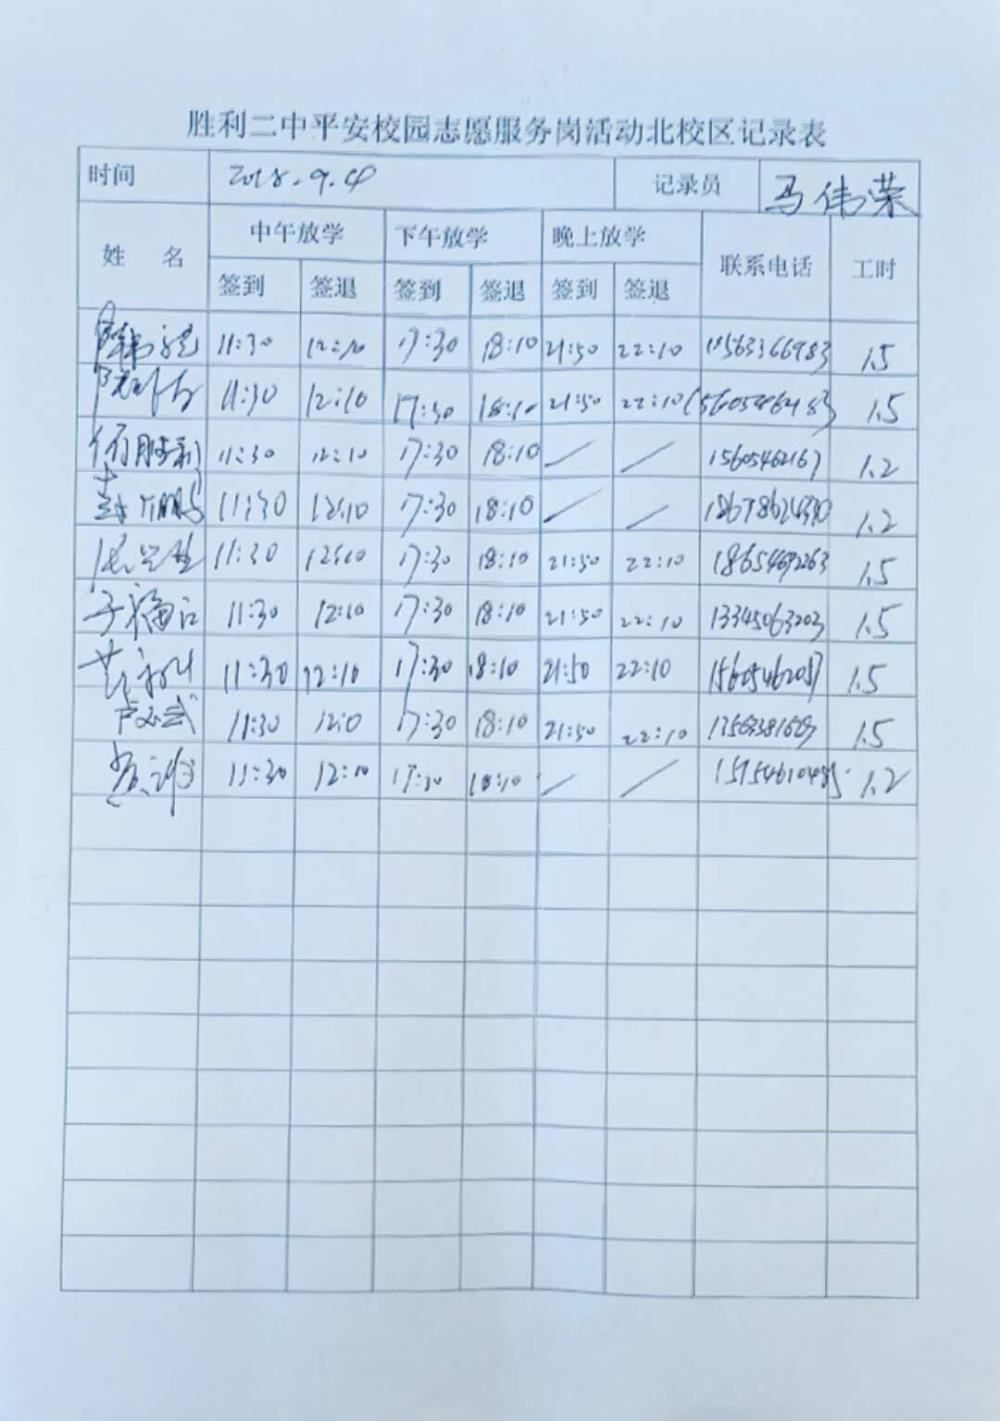 胜利二中平安校园志愿服务岗活动北校区记录表
时间 2018.9.4 记录员 马伟荣
姓 名 中午放学 下午放学 晚上放学 联系电话 工时
签到 签退 签到 签退 签到 签退
11:30 12:10 17:30 18:10 21:50 22:10 1.5
11:30 12:10 17:30 18:10 21:50 22:10 1.5
何胜利 11:30 12:10 17:30 18:10 / / 15605462167 1.2
11:30 12:10 17:30 18:10 / / 1.2
11:30 12:10 17:30 18:10 21:50 22:10 1.5
11:30 12:10 17:30 18:10 21:50 22:10 13345063203 1.5
11:30 12:10 17:30 18:10 21:50 22:10 1.5
11:30 17:30 18:10 21:50 22:10 1.5
11:30 12:10 17:30 18:10 / / 1.2